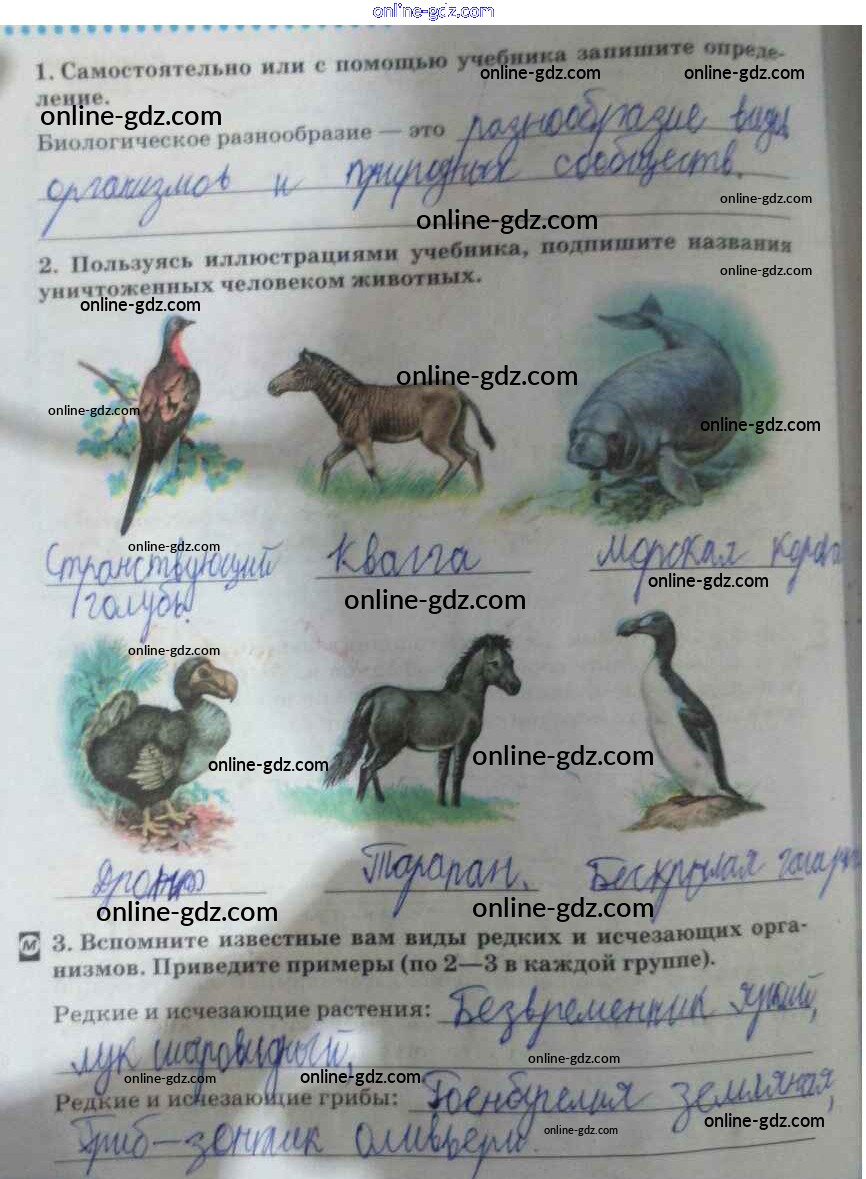 online-gdz.com
1. Самостоятельно или с помощью учебника запишите опреде-
online-gdz.com online-gdz.com
ление.
online-gdz.com
Биологическое разнообразие — это разнообразие видов
организмов и природных сообществ.
online-gdz.com
online-gdz.com
2. Пользуясь иллюстрациями учебника, подпишите названия
уничтоженных человеком животных.
online-gdz.com
online-gdz.com
online-gdz.com
online-gdz.com
online-gdz.com
online-gdz.com
Странствующий Квагга Морская корова
голубь.
online-gdz.com
online-gdz.com
online-gdz.com
online-gdz.com
online-gdz.com
Дронт Тарпан. Бескрылая гагарка
online-gdz.com
online-gdz.com
М 3. Вспомните известные вам виды редких и исчезающих орга-
низмов. Приведите примеры (по 2—3 в каждой группе).
Редкие и исчезающие растения: Безвременник яркий,
лук шаровидный,
online-gdz.com
online-gdz.com online-gdz.com
Редкие и исчезающие грибы: земляная,
Гриб-зонтик оливьери.
online-gdz.com
online-gdz.com